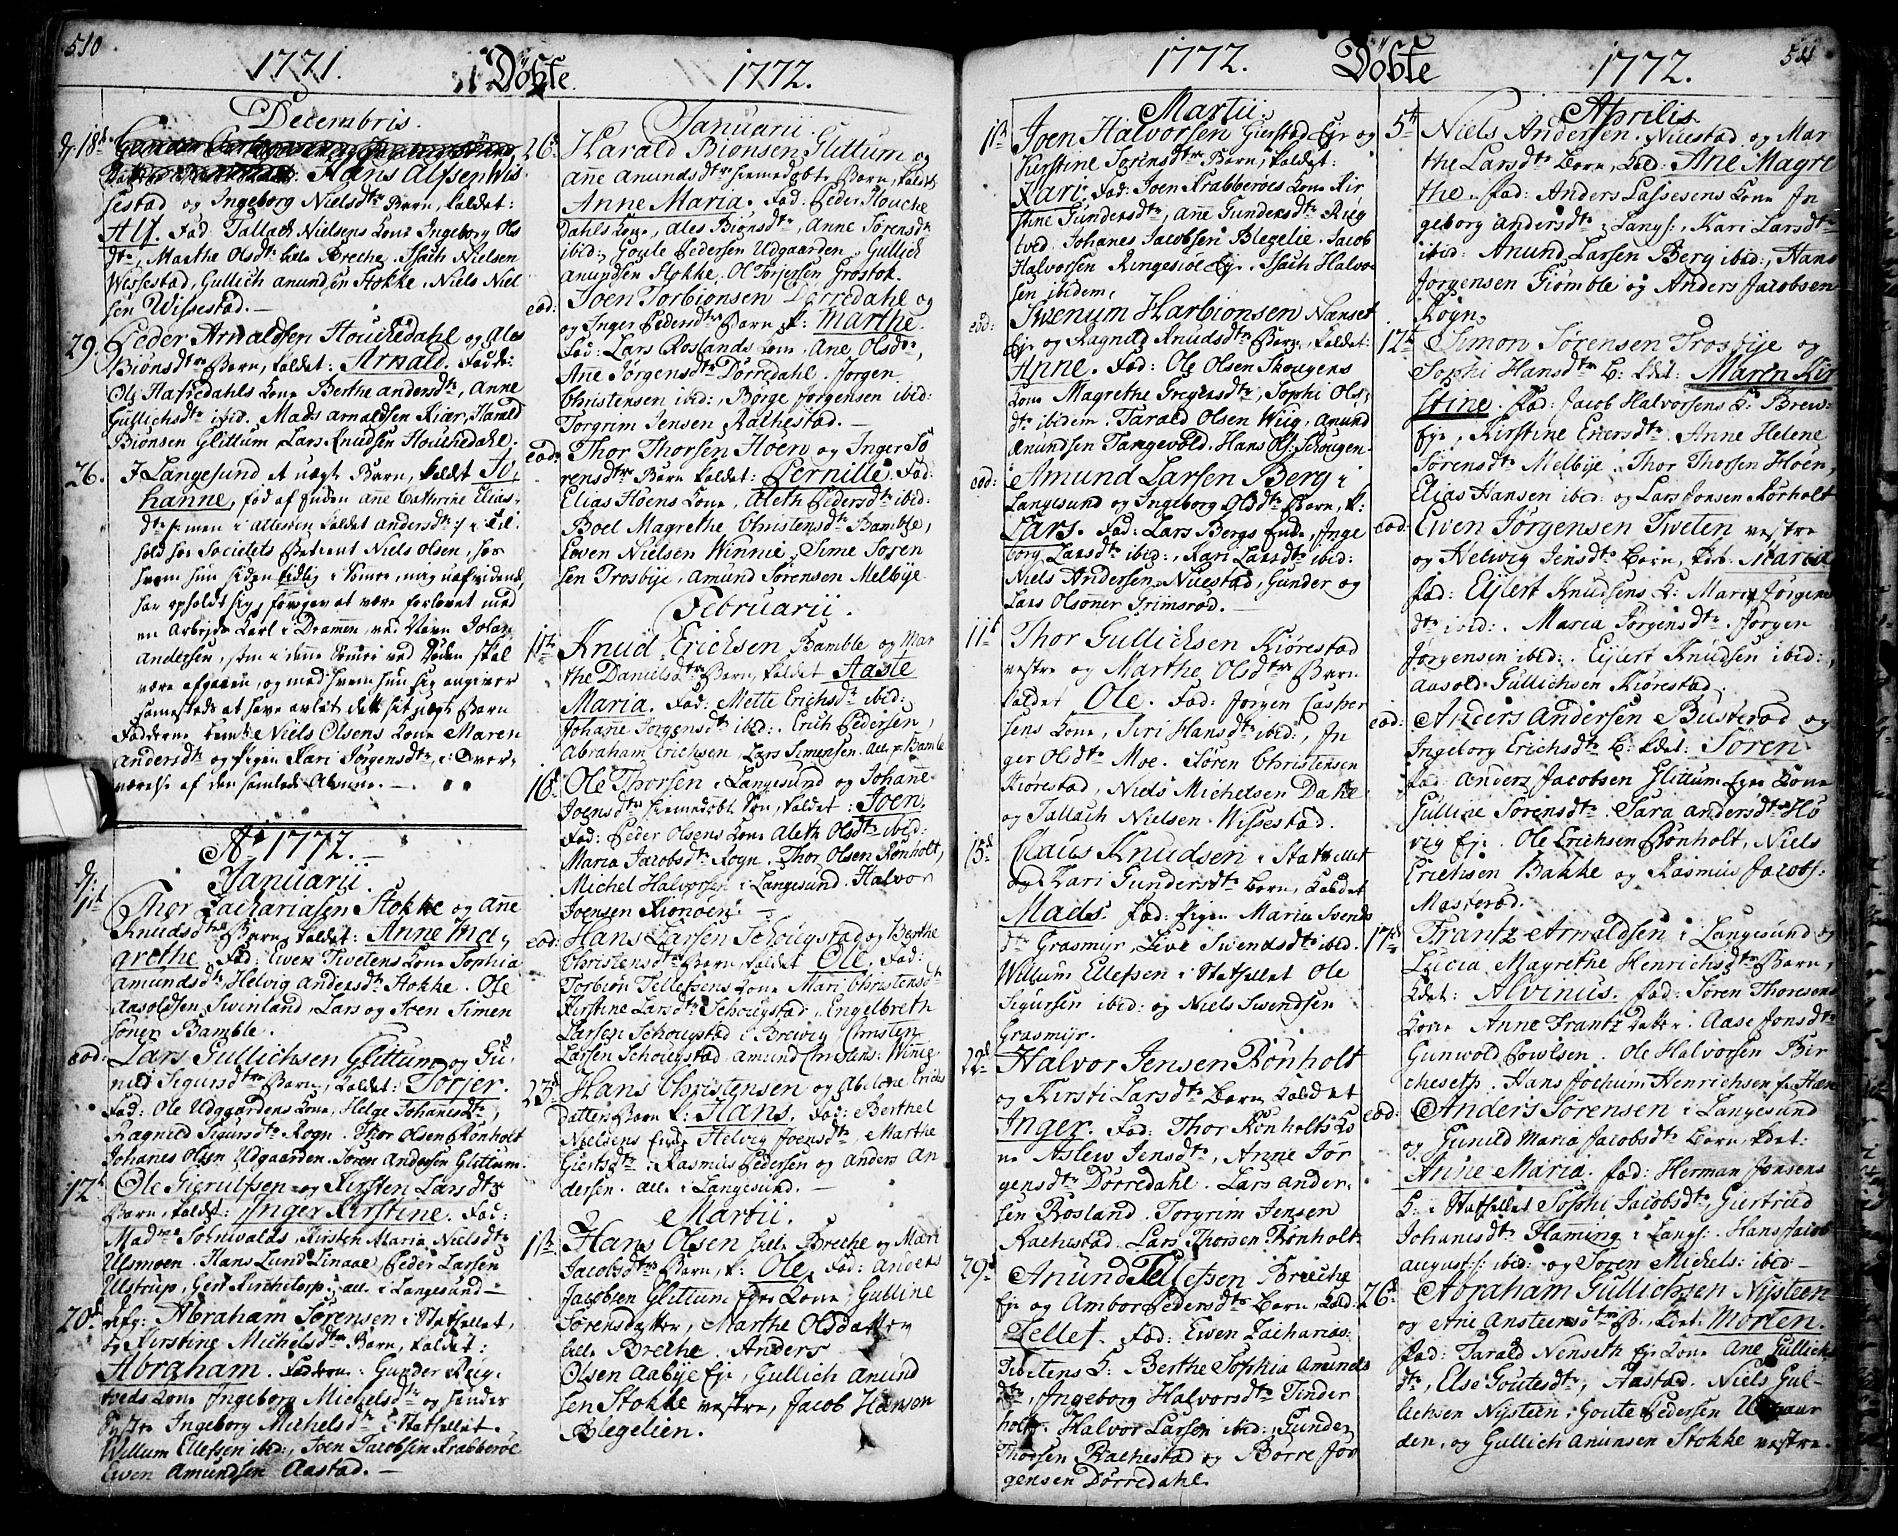 510
1771. Döbte. 1772.
Decembris.
d. 18de
Hans Alfsen Wis
sestad og Ingeborg Nielsdtr Barn, kaldet:
Alf. Fad: Tallach Nielsens Kone Ingeborg Ols
dtr, Marthe Olsdtr lille Breche, Isach Nielsen
Wissestad, Gullich Anundsen Stokke, Niels Niel
sen Wissestad.
29. Peder Arnaldsen Houchedahl og Ales
Bionsdtr Barn, kaldet: Arnald. Fadd:
Ole Hafredahls Kone Berthe Andersdtr, Anne
Gullichsdtr ibid. Mads Arnaldsen Kiær, Harald
Bionsen Glittum, Lars Knudsen Houchedahl.
26. I Langesund et uægte Barn, kaldet Jo
hanne, fød af Enken Ane Cathrine Elias
dtr men i Attesten kaldet Andersdtr i
hold hos Societets Betient Niels Olsen, hos
hvem hun siden
har opholdt sig, foregav at være forlovet med
en Arbejds Karl i Dramen, ved Navn Johan
Andersen, som i denne Somer ved Døden skal
være afgaaen, og med hvem hun sig angiver
sammesteds at have avlet dette sit uægte Barn
Fadderne Niels Olsens Kone Maren
Andersdtr og Pigen Kari Jørgensdtr, i Over,
værelse af den samlede Almue.
Ao 1772.
Januarii.
d. 1te
Thor Zachariasen Stokke og Ane
Knudsdtr Barn, kaldet: Anne Mar
grethe. Fad: Ewen Twetens Kone Sophia
Amundsdtr, Helvig Andersdtr Stokke. Ole
Aasoldsen Swinland, Lars og Joen Simen
søner Bamble.
eod: Lars Gullichsen Glittum og Gu
nild Sigursdtr Barn, kaldet: Torjer.
Fad: Ole Udgaardens Kone, Helge Johanesdtr,
Ragnild Sigursdtr Rogn. Thor Olsen Rönholt
Johanes Olsen Udgaarden. Sören Andersen Glittum.
12te Ole Gierulfsen og Kirsten Larsdtr
Barn, kaldet: Inger Kirstine. Fad:
Madme Sörnwalds, Kirsten Maria Nielsdtr
Ulsmoen. Hans Lund Linaae, Peder Larsen
Ulstrup, Gert Kirchetorp; alle i Langesund
20de Abraham Sörensen i Statfellet,
og Kirstine Michelsdtr Barn, kaldet:
Abraham. Fadd: Gunder Rüg
tveds Kone Ingeborg Michelsdtr og hendes
Syster Ingeborg Michelsdtr i Statfellet.
Willum Ellefsen ibid:, Joen Jacobsen Krabberöe
Ewen Amundsen Aastad.
Januarii.
26de Harald Bionsen Glittum og
Ane Anundsdtr hiemedöbte Barn, kaldet
Anne Maria. Fad: Peder Houche
dahls Kone, Ales Bionsdtr, Anne Sörensdtr
ibid: Goute Pedersen Udgaarden, Gullich
Anundsen Stokke. Ole Torjersen Grostok.
eod: Joen Torbionsen Dörredahl og
og Inger Pedersdtr Barn k: Marthe.
Fad: Lars Roslands Kone, Ane Olsdtr,
Ane Jörgensdtr Dörredahl. Jörgen
Christensen ibid:, Börge Jörgensen ibid:
Torgrim Jensen Rakestad.
eod: Thor Thorsen Hoen og Inger Sö
rensdtr Barn kaldet: Pernille. Fad:
Elias Hoens Kone, Aleth Pedersdtr ibid:
Boel Magrethe Christensdtr Bamble,
Ewen Nielsen Winnie, Sime Soren
sen Trosbye, Amund Sörensen Melbye.
Februarii.
11te Knud Erichsen Bamble og Mar
the Danielsdtr Barn, kaldet Aaste
Maria. Fad: Mette Erichsdtr ibid:
Johane Jorgensdtr ibid:. Erich Pedersen,
Abraham Erichsen, Lars Simensen. alle p. Bamble
16de Ole Thorsen i Langesund og Johane
Joensdtr hiemedöbt Søn, kaldet: Joen.
Fad: Peder Olsens Kone Aleth Olsdtr ibid:
Maria Jacobsdtr Rogn. Thor Olsen Rönholt,
Michel Halvorsen i Langesund. Halvor
Joensen Kionöen.
eod: Hans Larsen Schougstad og Berthe
Christensdtr Barn, kaldet Ole. Fad:
Torbion Tellefsens Kone Mari Christensdtr
Kirstine Larsdtr Schougstad, Engelbreth
Larsen Schougstad i Brewig, Christen
Larsen Schougstad Amund Christens: Winie
23de Hans Christensen og Abelone Erichs
datter Barn k: Hans. Fad: Berthel
Nielsens Enke Helvig Joensdtr, Marthe
Giertsdtr. Rasmus Pedersen og Anders An
dersen. alle i Langesund.
Martii.
1te Hans Olsen lille Breche og Mari
Jacobsdtr Barn, k: Ole. Fad: Anders
Jacobsen Glittum Eje Kone Gulline
Sörensdatter, Marthe Olsdatter
lille Breche. Anders
Olsen Aabye Eje, Gullich Anund
sen Stokke vestre, Jacob Hansen
Blegelien.
1772. Döbte 1772. 511
Martii
1te Joen Halvorsen Gierstad Eje og
Kirstine Sorensdtr Barn, kaldet:
Kari. Fad: Joen Krabberöes Kone Kir
stine Gundersdtr, Ane Gundersdtr Rüg
tved, Johanes Jacobsen Blegelie. Jacob
Halvorsen Ringesiöe Eje. Isach Halvor
sen ibidem.
eod: Swenum Harbionsen Nanset
Eje og Ragnild Knudsdtr Barn, kaldet:
Anne. Fad: Ole Olsen Skougens
Kone Magrethe Gregersdtr, Sophi Ols
dtr ibidem. Tarald Olsen Wiig, Anund
Anundsen Tangevald. Hans Ols: Schougen
eod: Amund Larsen Berg i
Langesund og Ingeborg Olsdtr Barn, k:
Lars. Fad: Lars Bergs Enke, Inge
borg Larsdtr ibid:, Kari Larsdtr ibid:
Niels Andersen Nuestad, Gunder og
Lars Olsöner Grimsröd.
11te Thor Gullichsen Kiörestad
vestre og Marthe Olsdtr Barn
kaldet Ole. Fad: Jörgen Casper
sens Kone, Siri Hansdtr ibid:, In
ger Olsdtr Moe. Sören Christensen
Kiörestad, Niels Michelsen Dahle
og Tallach Nielsen Wissestad.
15de Claus Knudsen i Statfellet
og Kari Gundersdtr Barn, kaldet
Mads. Fad: Pigen Maria Svends
dtr Grasmyr, Live Swendsdtr ibid:
Willum Ellefsen i Statfellet Ole
Sigursen ibid: og Niels Swendsen
Grasmyr.
22de Halvor Jensen Rönholt
og Kirsti Larsdtr Barn kaldet
Inger. Fad: Thor Rönholts Ko
ne Aslew Jensdtr, Anne Jör
gensdtr Dörredahl. Lars Ander
sen Rosland. Torgrim Jensen
Rachestad. Lars Thorsen Rönholt.
29de Anund Tellefsen Breche
Eje og Ambor Pedersdtr Barn, kald:
Tellef. Fad: Ewen Zacharias:
Tvetens K: Berthe Sophia Amunds
dtr, Ingeborg Halvorsdtr Tinder
holt. Halvor Larsen ibid:, Gunder
Thorsen Rachestad og Börre Jör
gensen Dörredahl.
Aprilis
5te Niels Andersen Nuestad og Mar
the Larsdtr Barn, kad: Ane Magre
the. Fad: Anders Lassesens Kone In
geborg Andersdtr i Langs: Kari Larsdtr
ibid: Anund Larsen Berg ibid:, Hans
Jorgensen Fiomble og Anders Jacobsen
Rogn.
12te Simon Sörensen Trosbye og
Sophi Hansdtr B: kdet: Maren Kir
stine. Fad: Jacob Halvorsens K: Brew-
Eje, Kirstine Eiersdtr. Anne Helene
Sörensdtr Melbye. Thor Thorsen Höen,
Elias Hansen ibid: og Lars Jonsen Rörholt
eod: Ewen Jörgensen Tweten vestre
og Helwig Jensdtr Barn, kd: Maria
Fad: Ejlert Knudsens K: Marie Jörgens
dtr ibid:. Maria Jorgensdtr. Jorgen
Jorgensen ibid: Ejlert Knudsen ibid:,
Aasold Gullichsen Kiörestad.
eod: Anders Andersen Busteröd og
Ingeborg Erichsdtr B: kdet: Sören
Fad: Anders Jacobsen Glittum Eje Kone
Gulline Sörensdtr. Sara Andersdtr Hö
vig Eje. Ole Erichsen Rönholt, Niels
Erichsen Bakke og Rasmus Jacobs:
Masteröd.
17de Frantz Arnaldsen i Langesund og
Lucia Magrethe Henrichsdtr Barn,
kdet: Alvinus. Fad: Sören Thoresens
Kone Anne Frantz datter. Aase Jonsdtr
Gunwold Powlsen. Ole Halvorsen Bir
chesets. Hans Jochum Henrichsen
eod: Anders Sörensen i Langesund
og Gunild Maria Jacobsdtr Barn, kdet:
Anne Maria. Fad: Herman Jonsens
K: i Statfellet Sophi Jacobsdtr, Giertrud
Johanisdtr Flamming i Langs: Hans Jacob
August:s: ibid: og Sören Michels: ibid:
26de Abraham Gullichsen Nysteen
og Ane Ansteensdtr B:, kdet: Morten.
Fad: Tarald Nenseth Eje Kone Ane Gullichs
dtr, Else Goutesdtr, Aastad. Niels Gul
lichsen Nysteen, Goute Pedersen Udgaar
den, og Gullich Anunsen Stokke vestre.